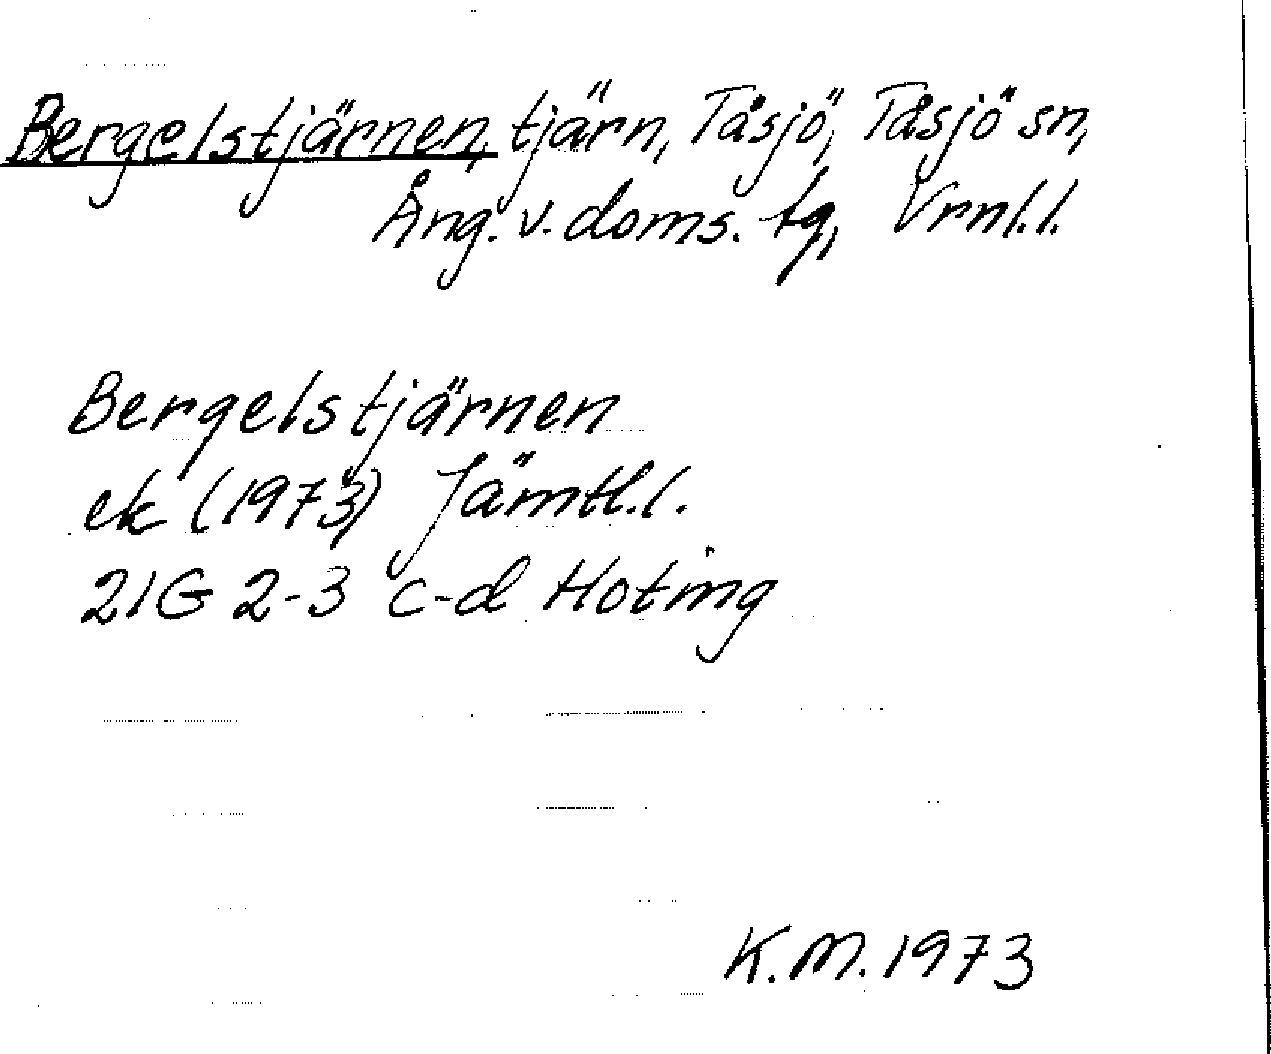 Bergelstjärnen, tjärn, Tåsjö, Tåsjö sn,
Ång. v. doms. tg, Vrnl.l.
Bergelstjärnen
ek (1973) Jämtl.l.
21G 2-3 c-d Hoting
K.M. 1973